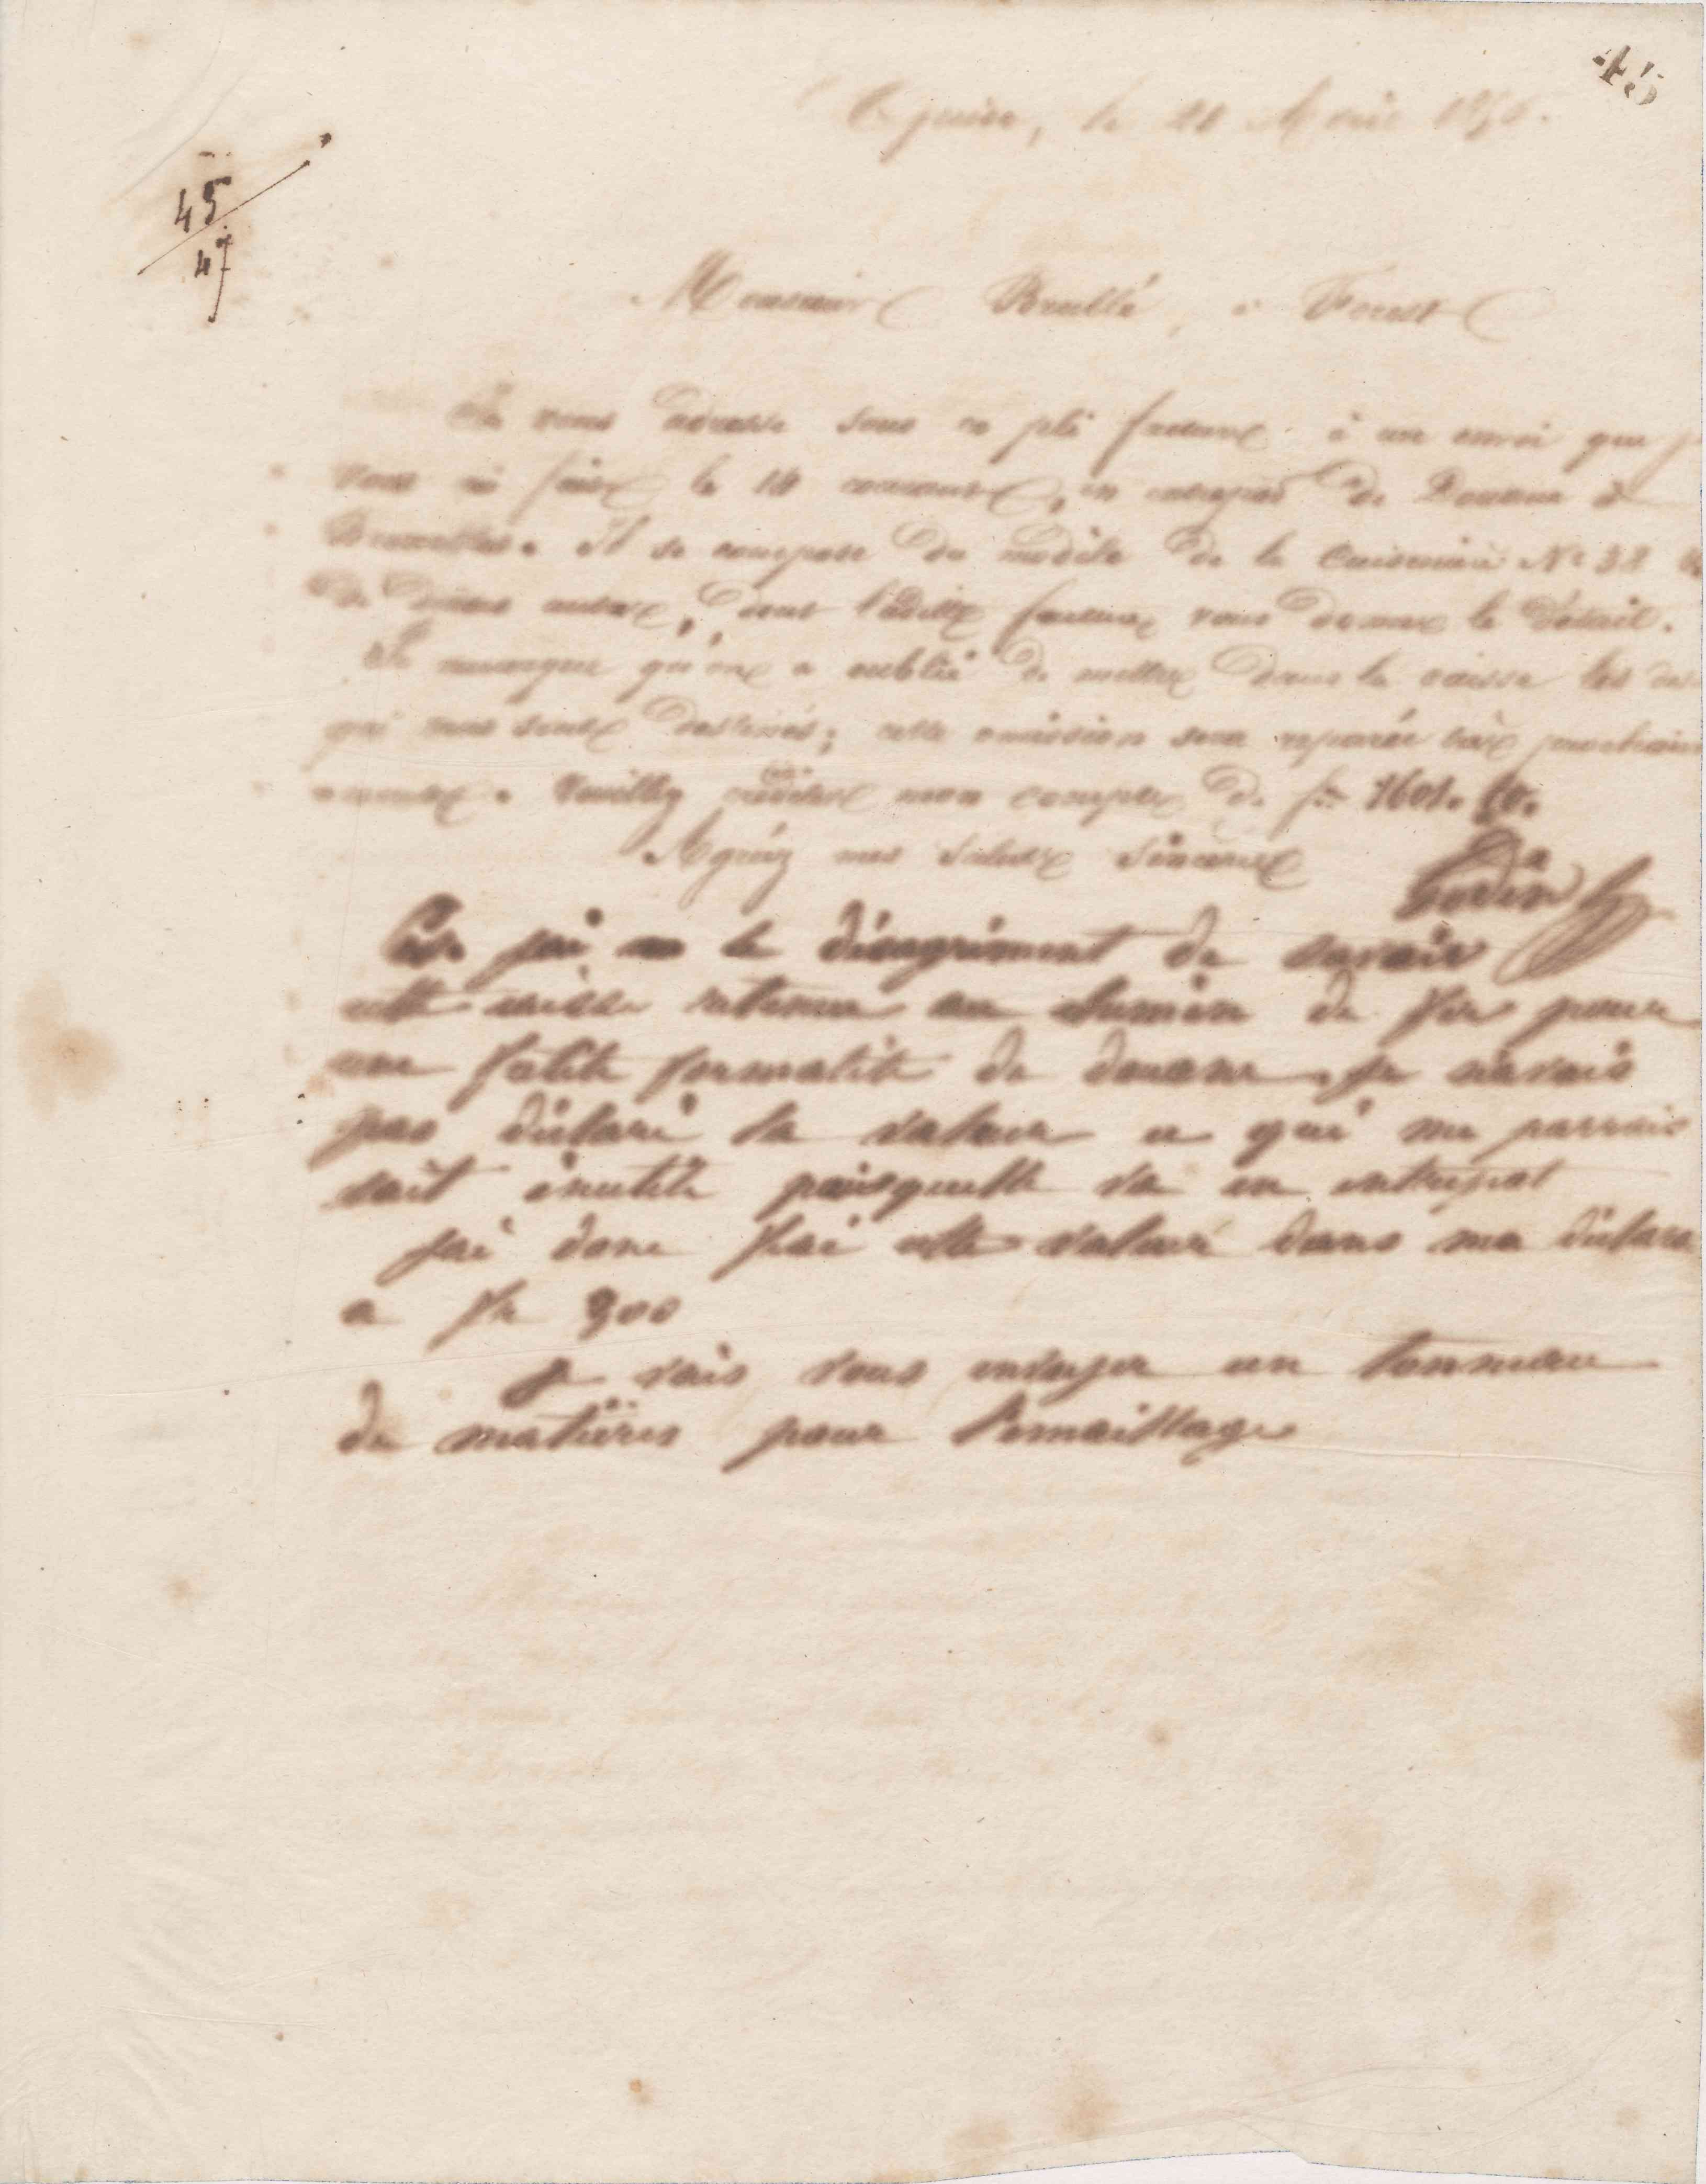 45
le 21 Avril
45
47
Monsieur Brullé, à Forest
Je vous adresse sous ce pli facture à un envoi que
vous ai fait le 10 courant, en entrepôt de Douane à
Bruxelles. Il se compose du modèle de la Cuisinière Nº 38
de divers autres, dont ladite facture vous donne le détail.
Je remarque qu'on a oublié de mettre dans la caisse les
qui vous sont destinés; cette omission sera reparée
Veuillez créditer mon compte de frs 1601.
Agréez mes saluts sincères
Godin
jai eu le désagrément de savoir
cette caisse retenue au chemin de fer pour
une petite formalité de douane. Je navais
pas déclaré la valeur ce qui me parrais
sait inutile puisquelle va en entrepot
jai donc fixé cette valeur dans ma déclara
a fr 900
Je vais vous envoyer un tonneau
de matières pour l'émaillage